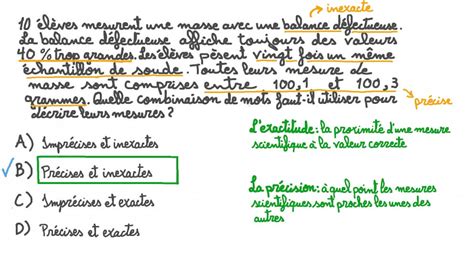 inexacte
10 élèves mesurent une masse avec une balance défectueuse.
La balance défectueuse affiche toujours des valeurs
40 % trop grandes. Les élèves pèsent vingt fois un même
échantillon de soude. Toutes leurs mesure de
masse sont comprises entre 100,1 et 100,3
grammes. Quelle combinaison de mots faut-il utiliser pour
décrire leurs mesures ?
précise
A) Imprécises et inexactes
B) Précises et inexactes
C) Imprécises et exactes
D) Précises et exactes
L'exactitude : la proximité d'une mesure
scientifique à la valeur correcte
La précision : à quel point les mesures
scientifiques sont proches les unes des
autres